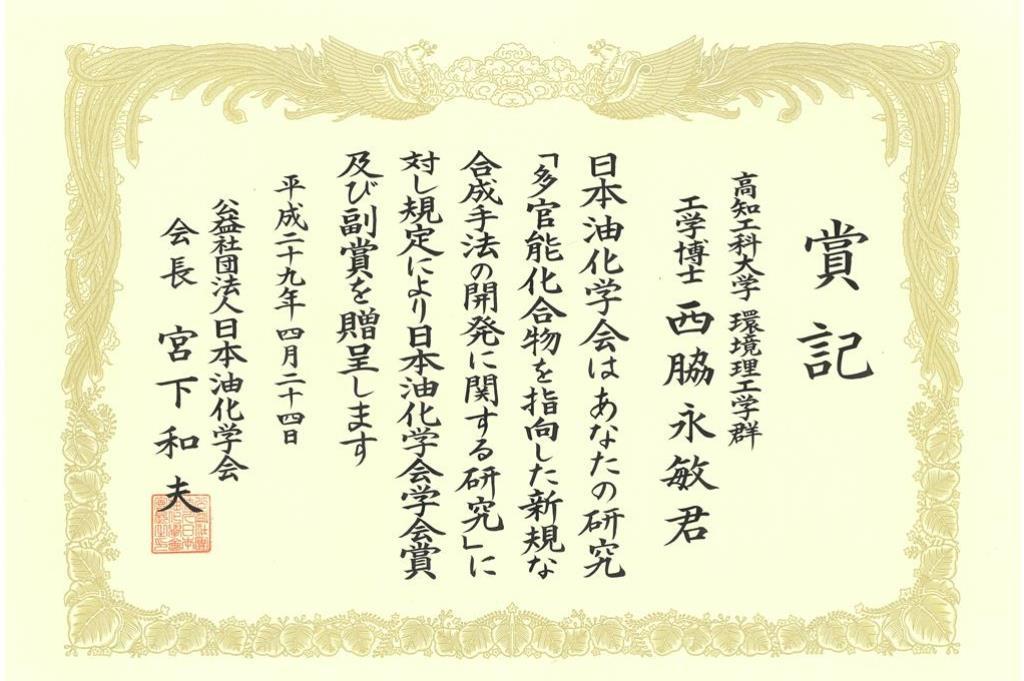 賞記
高知工科大学 環境理工学群
工学博士 西脇永敏君
日本油化学会はあなたの研究
「多官能化合物を指向した新規な
合成手法の開発に関する研究」に
対し規定により日本油化学会学会賞
及び副賞を贈呈します
平成二十九年四月二十四日
公益社団法人日本油化学会
会長 宮下和夫